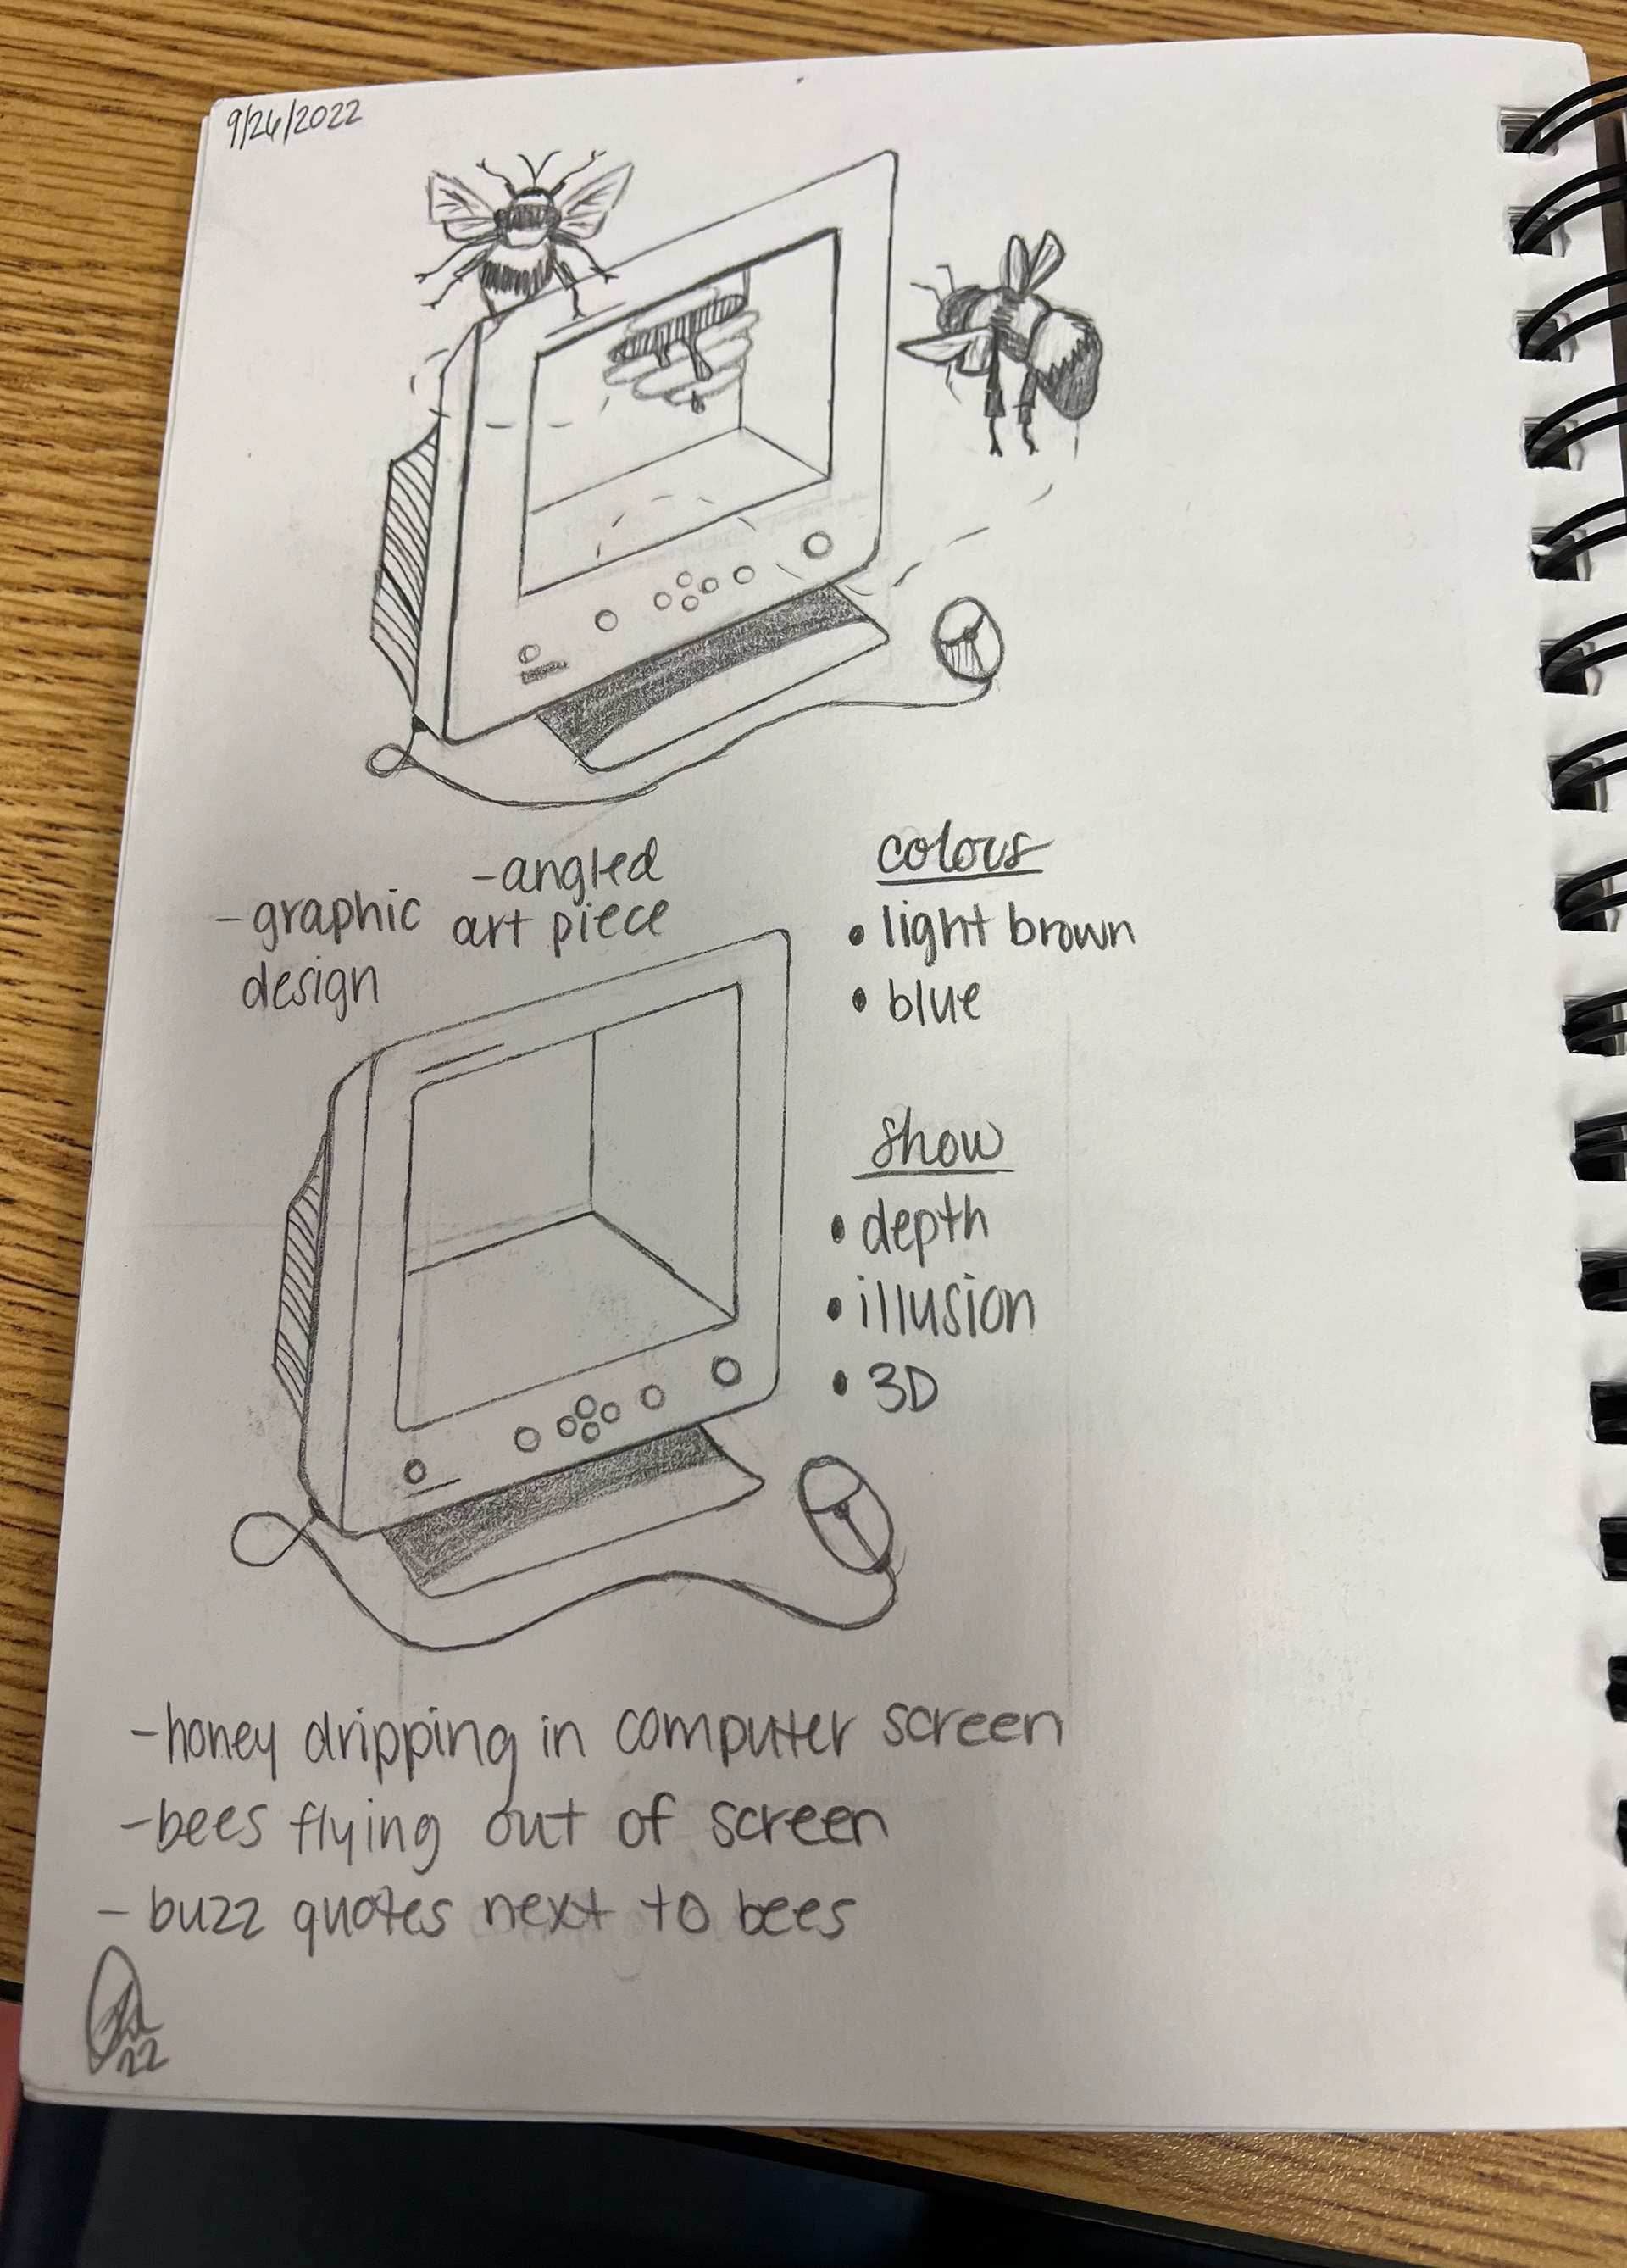 9/26/2022
-angled
art piece
-graphic
design
colors
• light brown
• blue
show
• depth
• illusion
• 3D
-honey dripping in computer screen
-bees flying out of screen
- buzz quotes next to bees
22